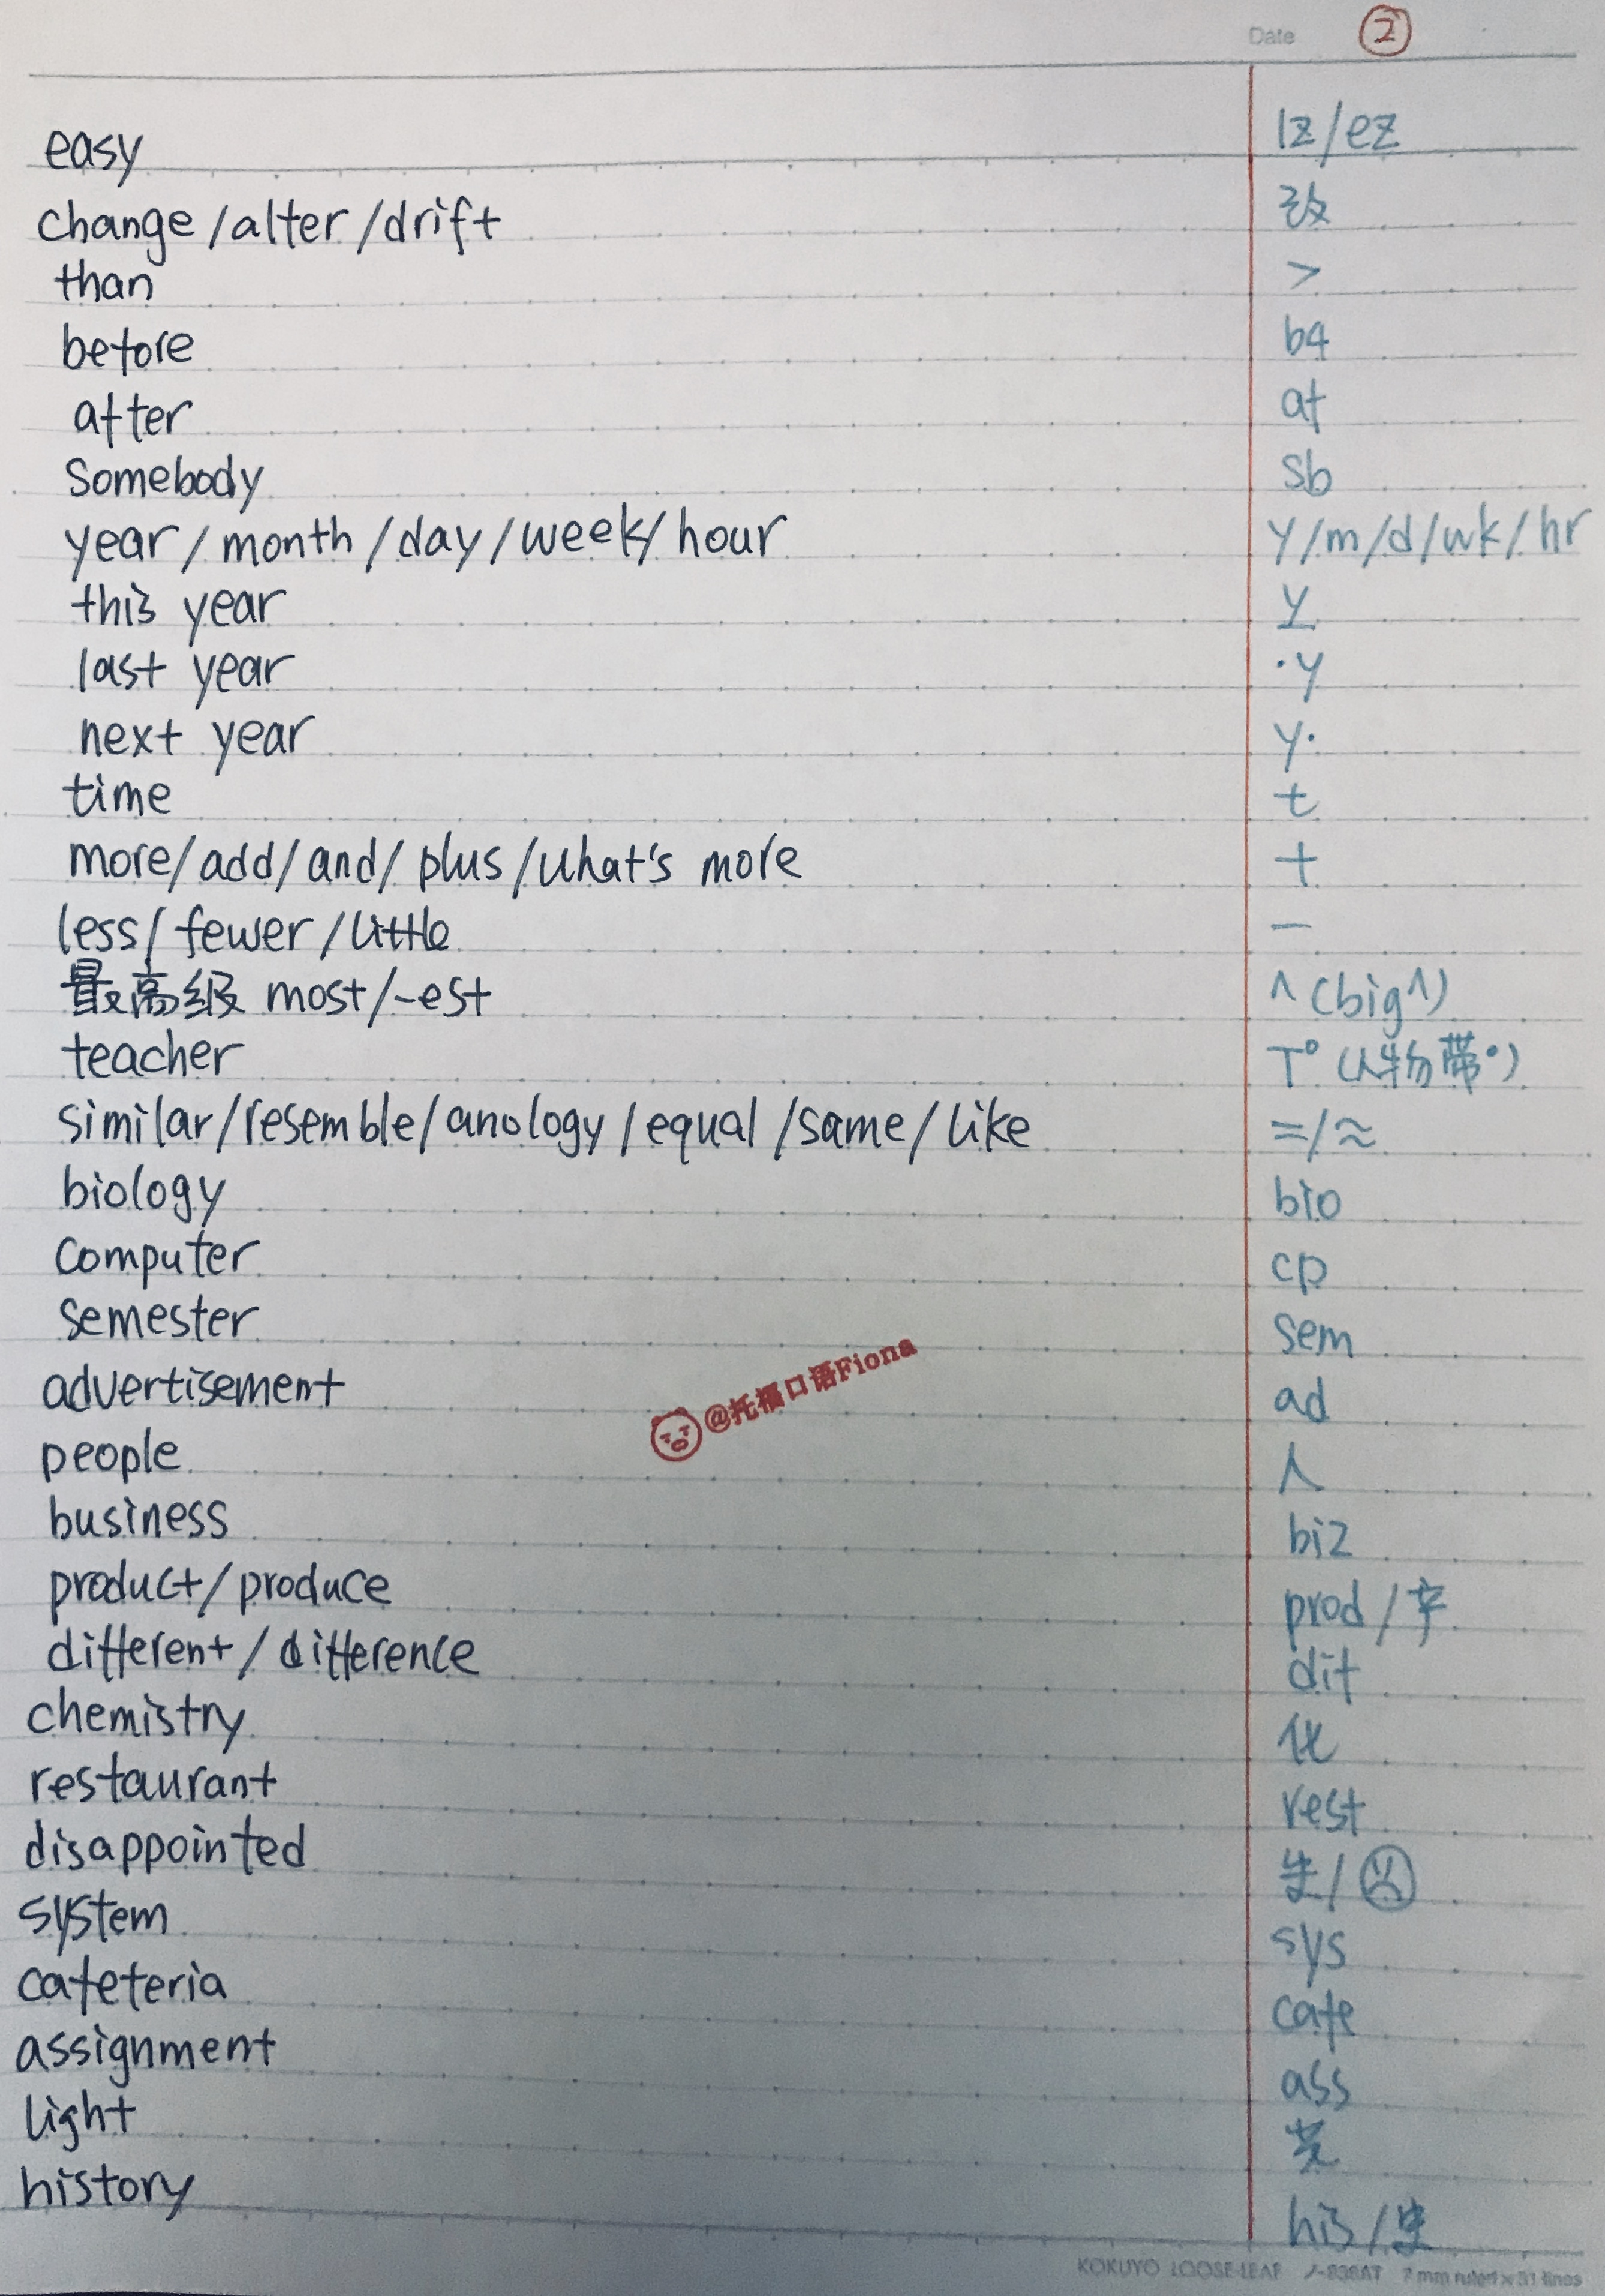 Date ②
easy 1z/ez
change/alter/drift 改
than >
before b4
after af
somebody sb
year/month/day/week/hour y/m/d/wk/hr
this year y
last year ·y
next year y·
time t
more/add/and/plus/what's more +
less/fewer/little —
最高级 most/-est ^(big^)
teacher T° (人物带°)
similar/resemble/anology/equal/same/like =/≈
biology bio
computer cp
semester sem
advertisement ad
@托福口语Fiona
people 人
business biz
product/produce prod/产
different/difference dif
chemistry 化
restaurant rest
disappointed 失/☹
system sys
cafeteria cafe
assignment ass
light 光
history his/史
KOKUYO LOOSE-LEAF ノ-836AT 7 mm ruled×31 lines